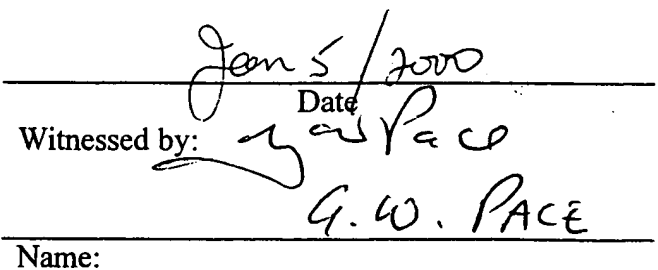 Jan 5/2000
Date
Witnessed by: GW Pace
G.W. PACE
Name: